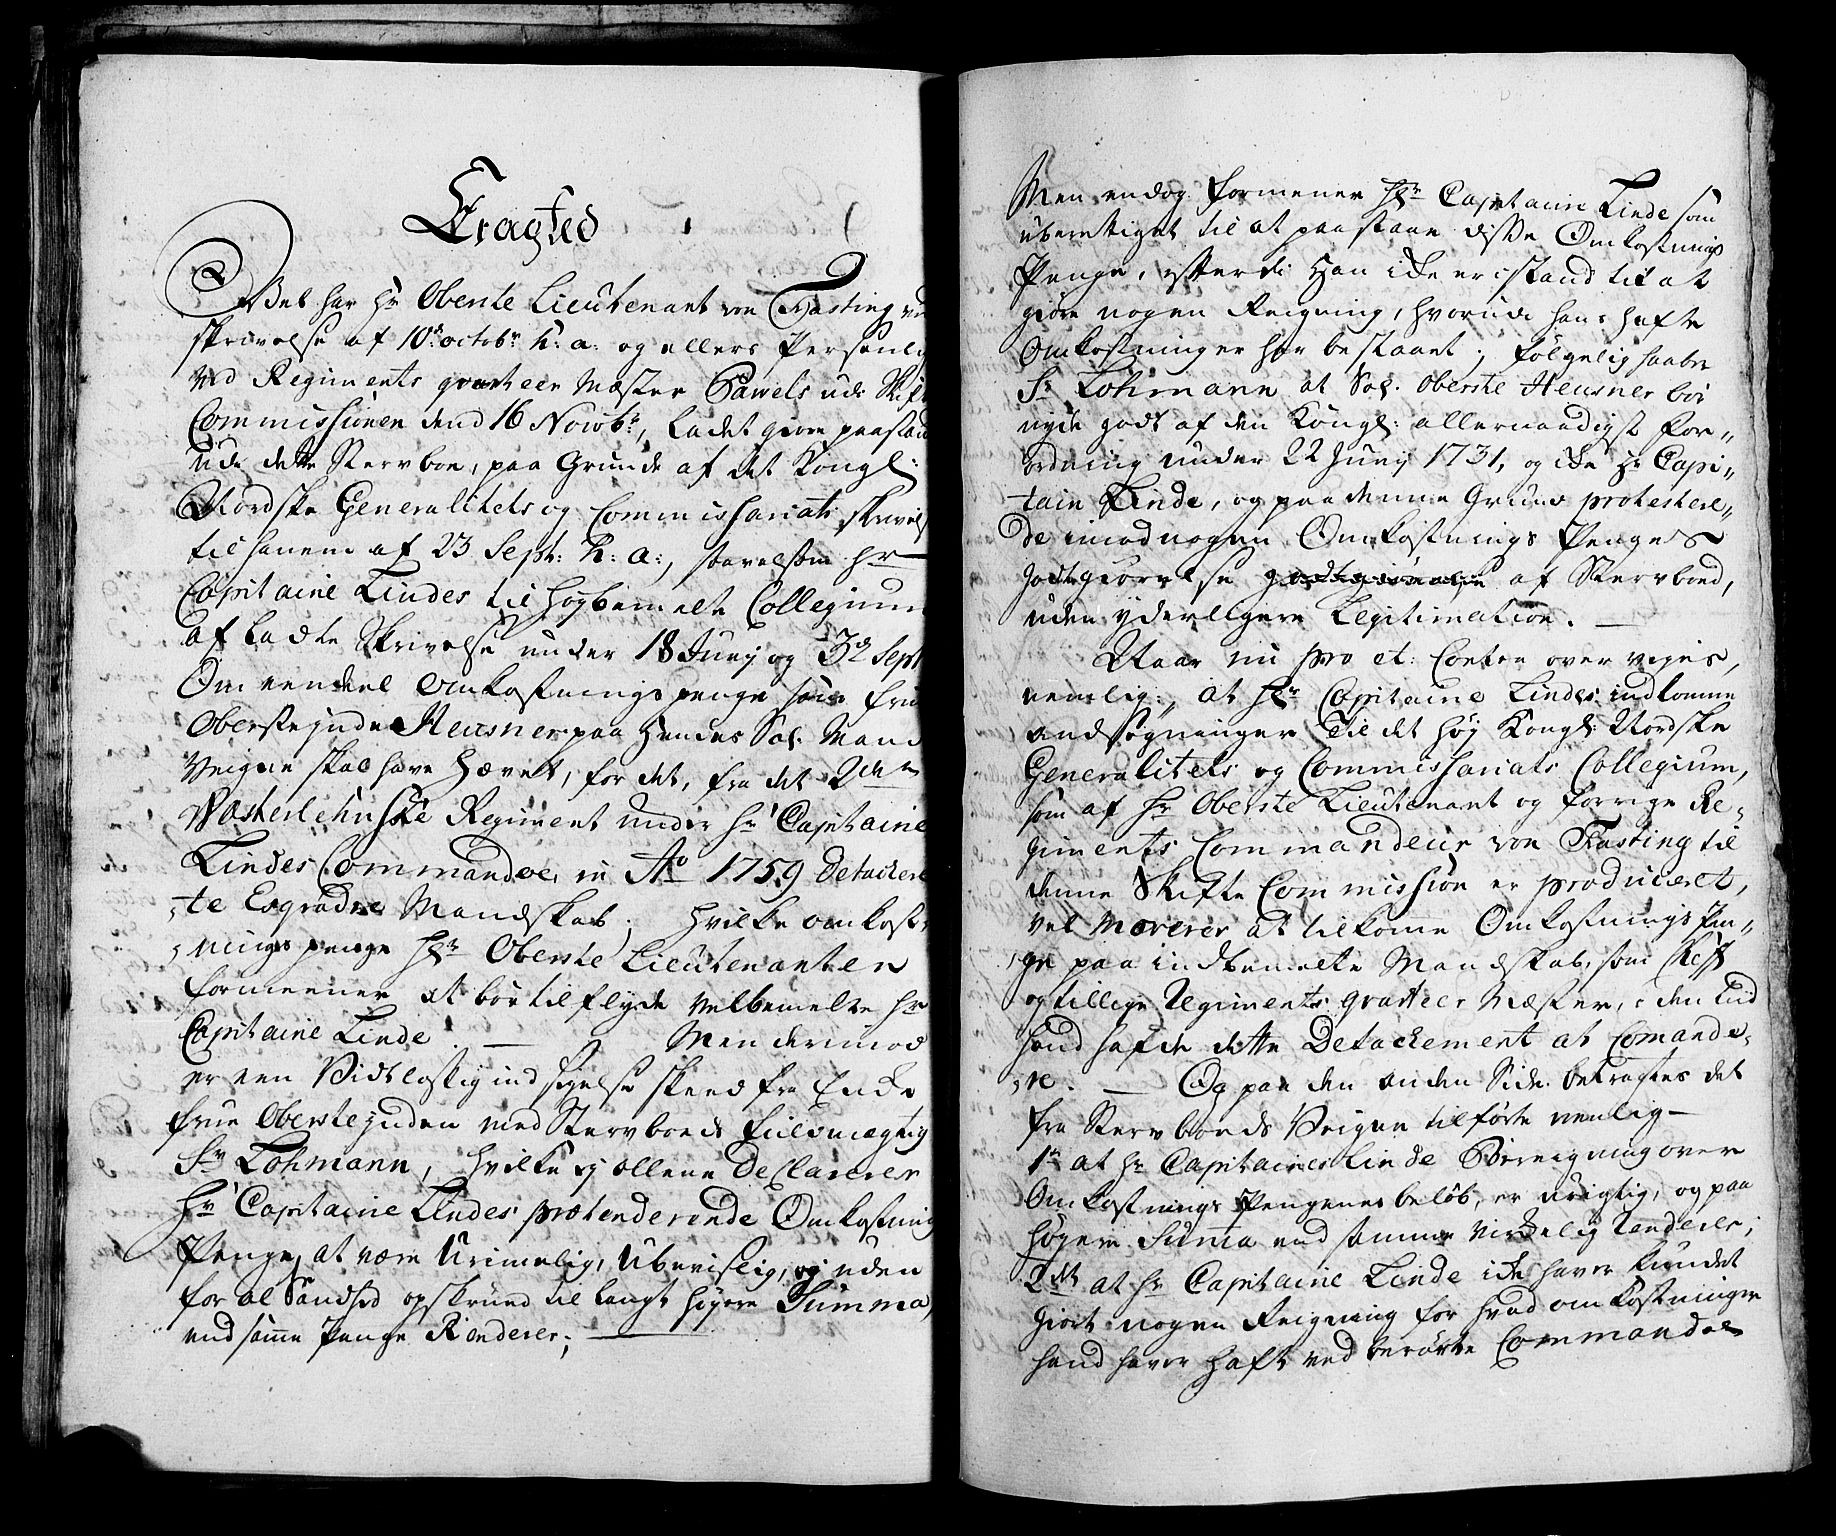 Eragted
Vel har Hr Oberste Lieutenant von Fasting ved
skrivelse af 10de octobr h: a: og ellers Personlig
ved Regiments qvarteer Mæster Pawels udi Skifte
Commissionen dend 16 Novbr, ladet giøre paastand
udi dette Stervboe, paa Grund af det Kongl:
Nordske Generalitets og Commissariats skrivelse
til hanem af 23 Sept: h: a:, saavelsom Hr
Capitaine Lindes til høybemelte Collegium
afladte Skrivelse under 18 Junj og 3de Sept
Om een deel omkostnings penge som frue
Oberstejnde Heusner paa Hendes Sal. Mands
Veigne skal have Hævet, for det, fra det 2det
Westerlehnske Regiment under Hr Capitaine
Lindes Commandoe, in Ao 1759 Detachere-
-te Eqvadre Mandskab; hvilke omkost-
-nings penge Hr Oberste Lieutenanten
formeener at bør tilflyde velbemelte Hr
Capitaine Linde. — Men derimod
er een Vidtløftig indsigelse skeed fra Encke
frue Oberstejnden med Stervboeds fuldmægtig
Sr Lohmann, hvilke ej allene Declarerer
Hr Capitaine Lindes prætenderende Omkostnings
Penge, at være Urimelig, Ubeviislig, og uden
for al Sandhed opskrued til langt høyere Summa,
end samme Penge Renderer; —
Men endog formener Hr Capitaine Linde som
uberettiget til at paastaae disse Omkostnings
Penge, efterdi Han icke er i stand til at
giøre nogen Reigning, hvorudi hans hafte
Omkostninger har bestaaet; følgelig haabr
Sr Lohmann at Sal. Oberste Heusner bør
nyde godt af den Kongl: allernaadigst For-
ordning under 22 Junj 1731, og icke Hr Capi-
-tain Linde, og paa denne Grund protestere-
de imod nogen Omkostnings Penges
Godtgiørelse godtgiørelse af Stervboed,
uden yderligere Legitimation. —
Naar nu pro et: Contra overvejes,
nemlig:, at Hr Capitaine Lindes indkomne
andsøgninger Til det høy Kongl: Nordske
Generalitets og Commissariats Collegium,
som af Hr Oberste Lieutenant og forrige Re-
giments Commandeur von Fasting til
denne Skifte Commission er produceret,
vel moverer at tilkomme Omkostnings Pen-
ge paa indbemelte Mandskab, som Chef
og tillige Regiments qvarteer Mæster, i den tiid
hand hafde dette Detachement at Comande-
-re. — Og paa den anden Side betragtes det
fra Stervboeds Veigne tilførte nemlig—
1te at Hr Capitaines Linde Bereigning over
Omkostnings Pengenes beløb, er urigtig, og paa
høyere Summa end samme virkelig Renderer;
2det at Hr Capitaine Linde icke haver kundet
giort nogen Reigning for hvad omkostninger
hand haver haft ved berørte Commandoe